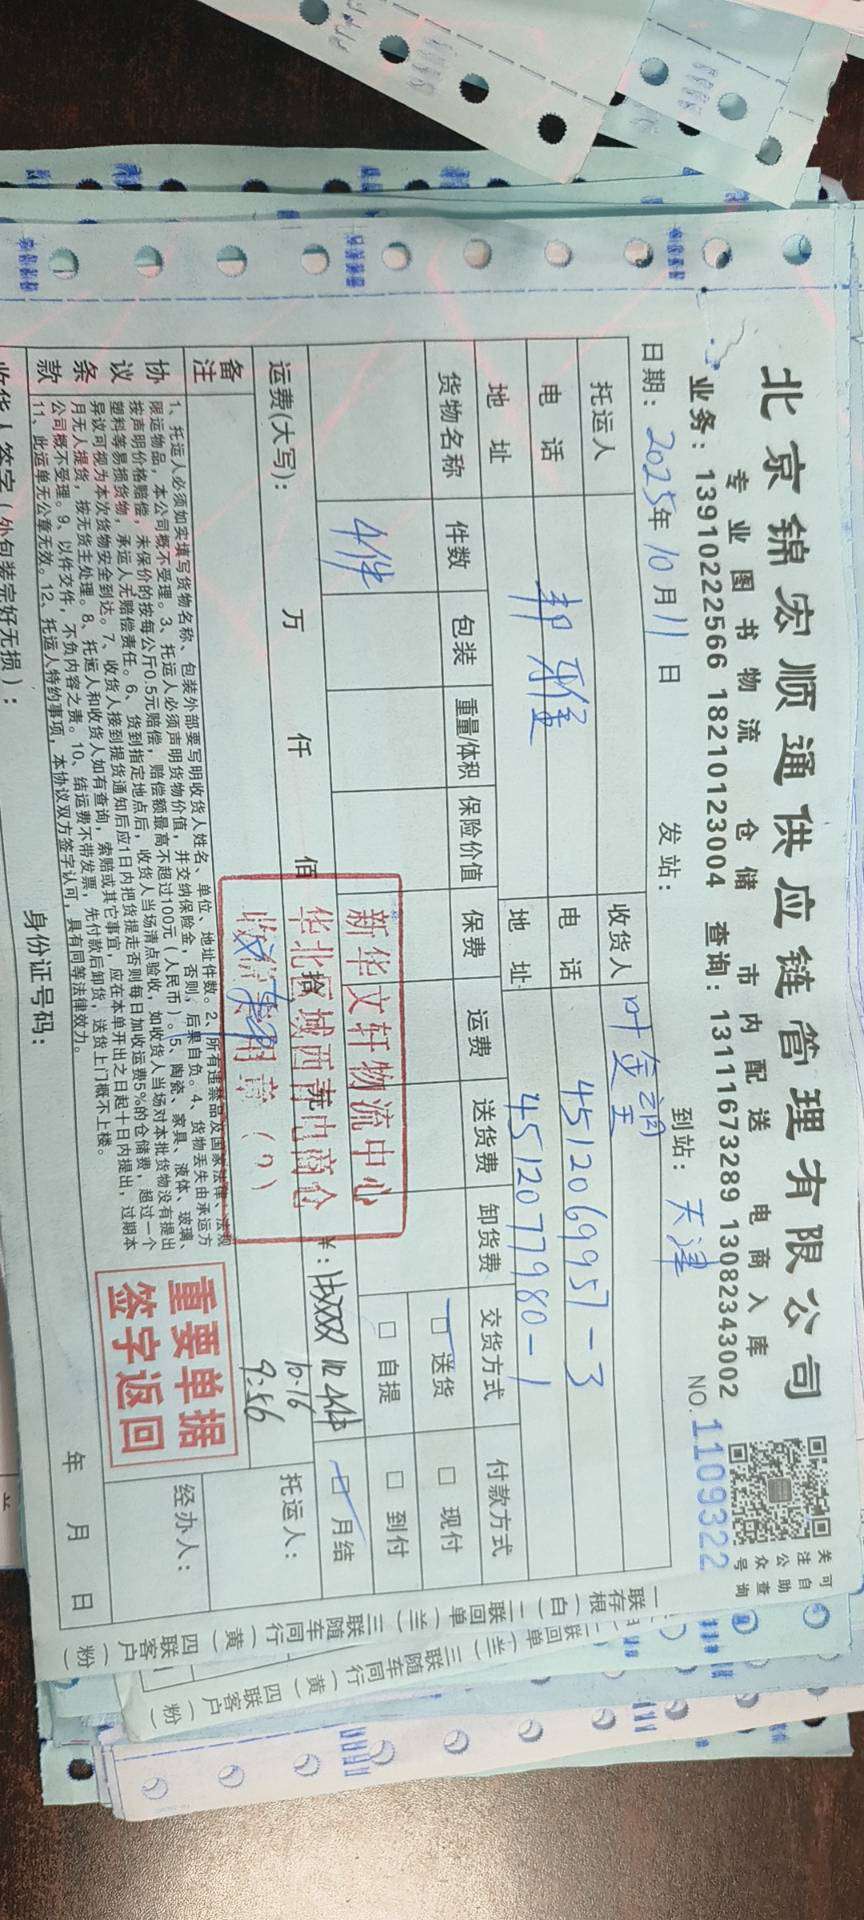 北京锦宏顺通供应链管理有限公司
专业图书物流 仓储 市内配送 电商入库
业务：13910222566 18210123004 查询：13111673289 13082343002
关注公众号
可自助查询
NO.1109322
日期：2025年10月11日 发站： 到站：天津
托运人 收货人
电话 电话 4512069957-3
地址 地址 4512077980-1
货物名称 件数 包装 重量/体积 保险价值 保费 运费 送货费 卸货费 交货方式 付款方式
4件
送货 现付
自提 到付
月结
新华文轩物流中心
华北区域西南电商仓
运费(大写)： 万 仟 佰 拾 元 ¥：
10:16
9:56
托运人：
备注
重要单据
签字返回
经办人：
协议条款
1、托运人必须如实填写货物名称、包装外部要写明收货人姓名、单位、地址件数。2、所有违禁品及国家法律、法规
限运物品，本公司概不受理。3、托运人必须声明货物价值，并交纳保险金，否则，后果自负。4、货物丢失由承运方
按声明价格赔偿，未保价的按每公斤0.5元赔偿，赔偿额最高不超过100元（人民币）。5、陶瓷、家具、液体、玻璃、
塑料等易损货物，承运人无赔偿责任。6、货到指定地点后，收货人当场清点验收，如收货人当场对本批货物没有提出
异议可视为本次货物安全到达。7、收货人接到提货通知后应1日内把货提走否则每日加收运费5%的仓储费，超过一个
月无人提货，按无货主处理。8、托运人和收货人如有查询，索赔或其它事宜，应在本单开出之日起十日内提出，过期本
公司概不受理。9、以件交件，不负内容之责。10、结运费不带发票，先付款后卸货，送货上门概不上楼。
11、此运单无公章无效。12、托运人特约事项，本协议双方签字认可，具有同等法律效力。
收货人签字（外包装完好无损）： 身份证号码： 年 月 日
一联存根（白）二联回单（兰）三联随车同行（黄）四联客户（粉）
二联回单（兰）三联随车同行（黄）四联客户（粉）